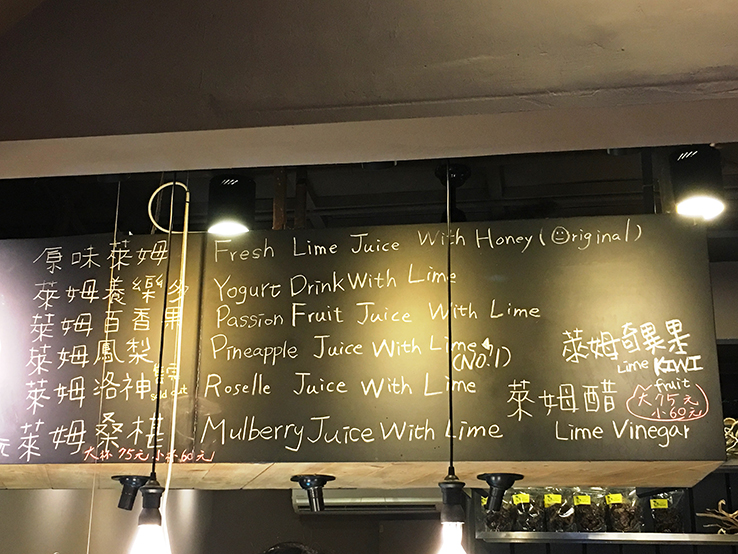 原味萊姆 Fresh Lime Juice With Honey (Original)
萊姆養樂多 Yogurt Drink With Lime
萊姆百香果 Passion Fruit Juice With Lime
萊姆鳳梨 Pineapple Juice With Lime
(NO.1)
萊姆洛神 sold out Roselle Juice With Lime
萊姆桑椹 Mulberry Juice With Lime
大杯75元 小杯60元
萊姆奇異果
Lime KIWI
fruit
萊姆醋 大75元
小60元
Lime Vinegar